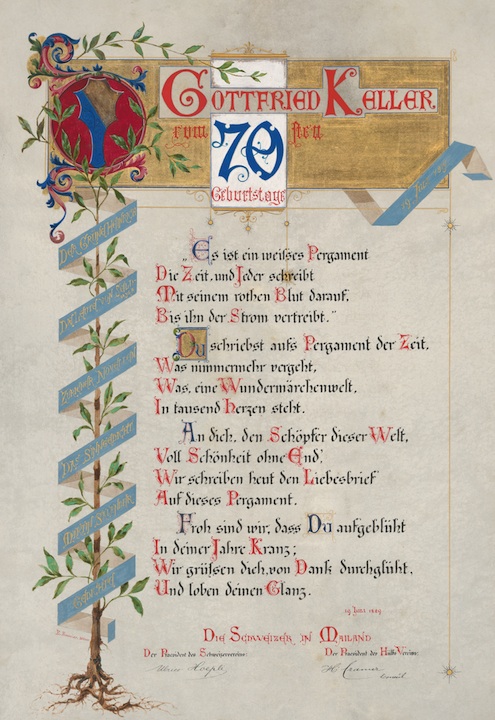 Gottfried Keller
zum 70 sten
Geburtstage
„Es ist ein weißes Pergament
Die Zeit, und Jeder schreibt
Mit seinem rothen Blut darauf,
Bis ihn der Strom vertreibt.“
Du schriebst aufs Pergament der Zeit,
Was nimmermehr vergeht,
Was, eine Wundermärchenwelt,
In tausend Herzen steht.
An dich, den Schöpfer dieser Welt,
Voll Schönheit ohne End,
Wir schreiben heut den Liebesbrief
Auf dieses Pergament.
Froh sind wir, dass Du aufgeblüht
In deiner Jahre Kranz;
Wir grüßen dich, von Dank durchglüht,
Und loben deinen Glanz.
19 Juli 1889
Die Schweizer in Mailand
Der Präsident des Schweizervereins:
Der Präsident des Hülfs-Vereins:
Hoepli
H. Cramer
Der grüne Heinrich
Züricher Novellen
Das Sinngedicht
Martin Salander
Gedichte